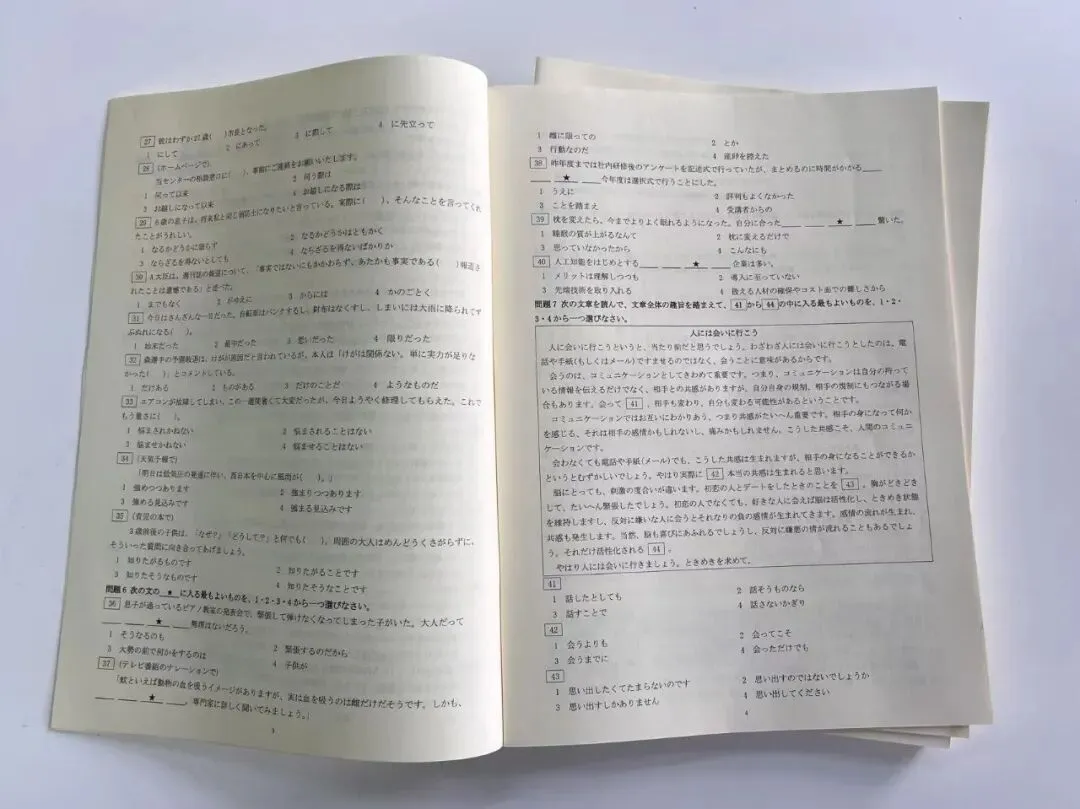 27 彼はわずか27歳(　)市長となった。
1 にして
2 にあって
3 に際して
4 に先立って
28 (ホームページで)
当センターの相談窓口に(　)、事前にご連絡をお願いいたします。
1 伺って以来
2 伺う際は
3 お越しになって以来
4 お越しになる際は
29 6歳の息子は、将来私と同じ消防士になりたいと言っている。実際に(　)、そんなことを言ってくれ
たことがうれしい。
1 なるかどうかに限らず
2 なるかどうかはともかく
3 ならざるを得ないとしても
4 ならざるを得ないばかりか
30 A大臣は、週刊誌の報道について、「事実ではないにもかかわらず、あたかも事実である(　)報道さ
れたことは遺憾である」と述べた。
1 までもなく
2 がゆえに
3 からには
4 かのごとく
31 今日はさんざんな一日だった。自転車はパンクするし、財布はなくすし、しまいには大雨に降られてず
ぶぬれになる(　)。
1 始末だった
2 最中だった
3 思いだった
4 限りだった
32 森選手の予選敗退は、けがが原因だと言われているが、本人は「けがは関係ない。単に実力が足りな
かった(　)」とコメントしている。
1 だけある
2 ものがある
3 だけのことだ
4 ようなものだ
33 エアコンが故障してしまい、この一週間暑くて大変だったが、今日ようやく修理してもらえた。これで
もう暑さに(　)。
1 悩まされかねない
2 悩まされることはない
3 悩ませかねない
4 悩ませることはない
34 (天気予報で)
「明日は低気圧の発達に伴い、西日本を中心に風雨が(　)。」
1 強めつつあります
2 強まりつつあります
3 強める見込みです
4 強まる見込みです
35 (育児の本で)
3歳前後の子供は、「なぜ?」「どうして?」と何でも(　)。周囲の大人はめんどうくさがらずに、
そういった質問に向き合ってあげましょう。
1 知りたがるものです
2 知りたがることです
3 知りたそうなものです
4 知りたそうなことです
問題6 次の文の ★ に入る最もよいものを、1・2・3・4から一つ選びなさい。
36 息子が通っているピアノ教室の発表会で、緊張して弾けなくなってしまった子がいた。大人だって
____ ____ ★ ____ 無理はないだろう。
1 そうなるのも
2 緊張するのだから
3 大勢の前で何かをするのは
4 子供が
37 (テレビ番組のナレーションで)
「蚊といえば動物の血を吸うイメージがありますが、実は血を吸うのは雌だけだそうです。しかも、
____ ____ ★ ____、専門家に詳しく聞いてみましょう。」
3
1 雌に限っての
2 とか
3 行動なのだ
4 産卵を控えた
38 昨年度までは社内研修後のアンケートを記述式で行っていたが、まとめるのに時間がかかる____
____ ★ ____今年度は選択式で行うことにした。
1 うえに
2 評判もよくなかった
3 ことを踏まえ
4 受講者からの
39 枕を変えたら、今までよりよく眠れるようになった。自分に合った____ ____ ★ ____驚いた。
1 睡眠の質が上がるなんて
2 枕に変えるだけで
3 思っていなかったから
4 こんなにも
40 人工知能をはじめとする____ ____ ★ ____企業は多い。
1 メリットは理解しつつも
2 導入に至っていない
3 先端技術を取り入れる
4 扱える人材の確保やコスト面での難しさから
問題7 次の文章を読んで、文章全体の趣旨を踏まえて、41から44の中に入る最もよいものを、1・2・
3・4から一つ選びなさい。
人には会いに行こう
人に会いに行こうというと、当たり前だと思うでしょう。わざわざ人には会いに行こうとしたのは、電
話や手紙(もしくはメール)ですませるのではなく、会うことに意味があるからです。
会うのは、コミュニケーションとしてきわめて重要です。つまり、コミュニケーションは自分の持って
いる情報を伝えるだけでなく、相手との共感がありますが、自分自身の規制、相手の規制にもつながる場
合もあります。会って 41 、相手も変わり、自分も変わる可能性があるということです。
コミュニケーションではお互いにわかりあう、つまり共感がたいへん重要です。相手の身になって何か
を感じる、それは相手の感情かもしれないし、痛みかもしれません。こうした共感こそ、人間のコミュニ
ケーションです。
会わなくても電話や手紙(メール)でも、こうした共感は生まれますが、相手の身になることができるか
というとむずかしいでしょう。やはり実際に 42 本当の共感は生まれると思います。
脳にとっても、刺激の度合いが違います。初恋の人とデートをしたときのことを 43 。胸がどきどき
して、たいへん緊張したでしょう。初恋の人でなくても、好きな人に会えば脳は活性化し、ときめき状態
を維持しますし、反対に嫌いな人に会うとそれなりの負の感情が生まれてきます。感情の流れが生まれ、
共感も発生します。当然、脳も喜びにあふれるでしょうし、反対に嫌悪の情が流れることもあるでしょ
う。それだけ活性化される 44 。
やはり人には会いに行きましょう。ときめきを求めて。
41
1 話したとしても
2 話そうものなら
3 話すことで
4 話さないかぎり
42
1 会うよりも
2 会ってこそ
3 会うまでに
4 会っただけでも
43
1 思い出したくてたまらないのです
2 思い出すのではないでしょうか
3 思い出すしかありません
4 思い出してください
4